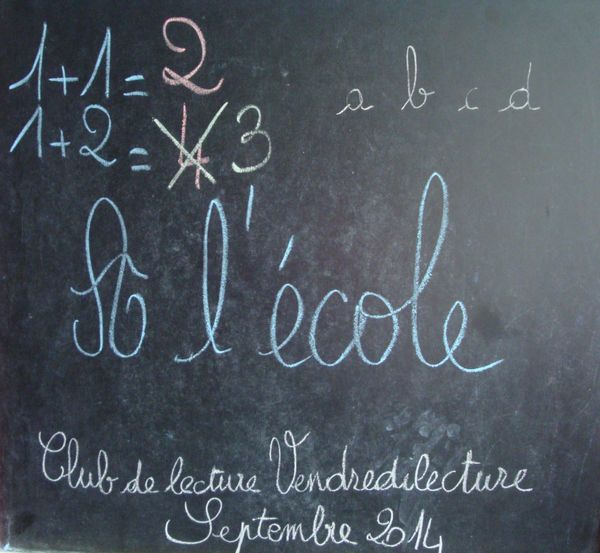 1+1=2
a b c d
1+2=4 3
A l'école
Club de lecture Vendredilecture
Septembre 2014